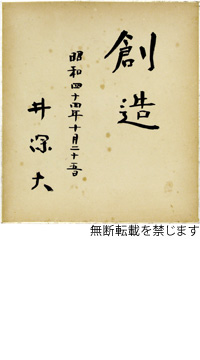 創造
昭和四十四年十月二十五日
井深大
無断転載を禁じます